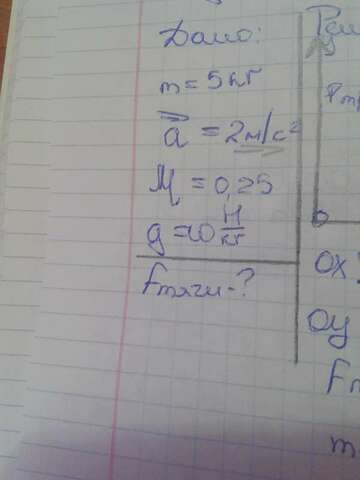 Дано:
m = 5 кг
a = 2 м/с²
M = 0,25
g = 10 Н/кг
Fтяги - ?
OX:
OY
m